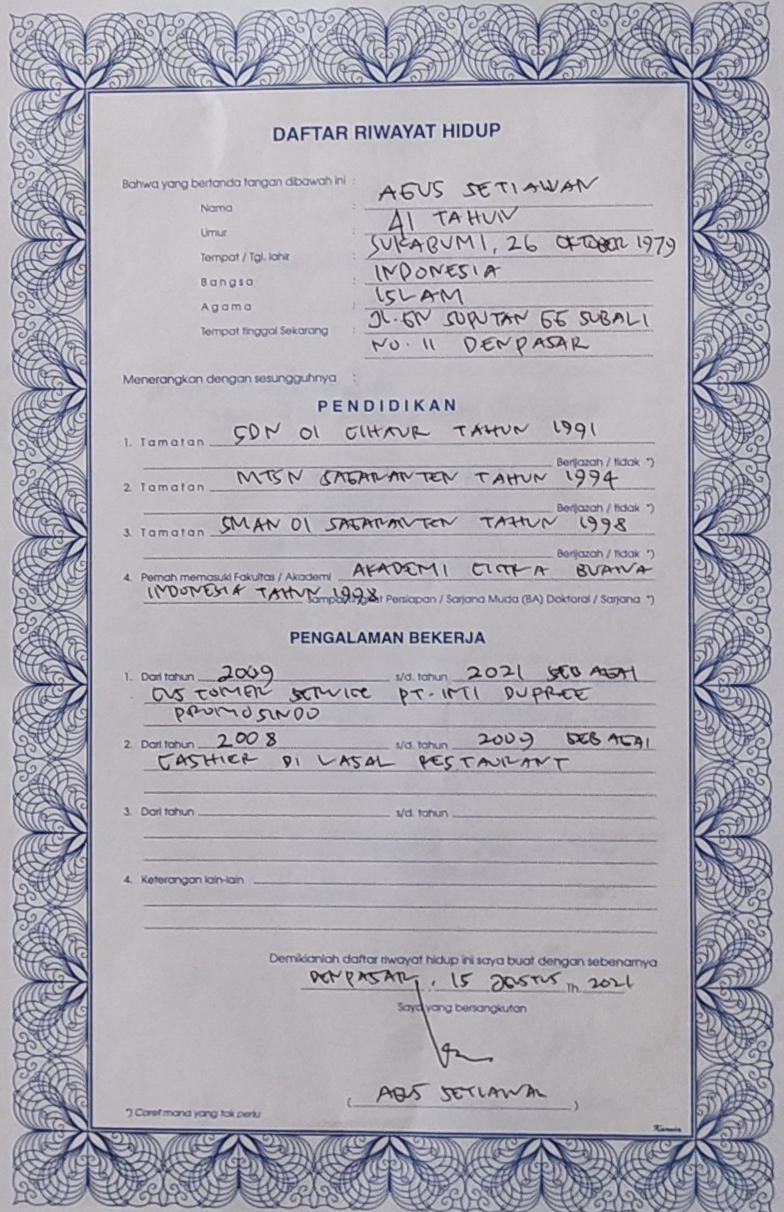 DAFTAR RIWAYAT HIDUP
Bahwa yang bertanda tangan dibawah ini :
Nama : AGUS SETIAWAN
Umur : 41 TAHUN
Tempat / Tgl. lahir : SUKABUMI, 26 OKTOBER 1979
Bangsa : INDONESIA
Agama : ISLAM
Tempat tinggal Sekarang : JL. GN SOPUTAN GG SUBALI
NO. 11 DENPASAR
Menerangkan dengan sesungguhnya :
PENDIDIKAN
1. Tamatan SDN 01 CIHAUR TAHUN 1991
Berijazah / tidak *)
2. Tamatan MTSN SAGARANTEN TAHUN 1994
Berijazah / tidak *)
3. Tamatan SMAN 01 SAGARANTEN TAHUN 1998
Berijazah / tidak *)
4. Pernah memasuki Fakultas / Akademi AKADEMI CITRA BUANA
INDONESIA TAHUN 1998 sampai tingkat Persiapan / Sarjana Muda (BA) Doktoral / Sarjana *)
PENGALAMAN BEKERJA
1. Dari tahun 2009 s/d. tahun 2021 SEBAGAI
CUSTOMER SERVICE PT. INTI DUFREE
PROMOSINDO
2. Dari tahun 2008 s/d. tahun 2009 SEBAGAI
CASHIER DI RESTAURANT
3. Dari tahun s/d. tahun
4. Keterangan lain-lain
Demikianlah daftar riwayat hidup ini saya buat dengan sebenarnya
DENPASAR, 15 AGUSTUS Th. 2021
Saya yang bersangkutan
( AGUS SETIAWAN )
*) Coret mana yang tak perlu